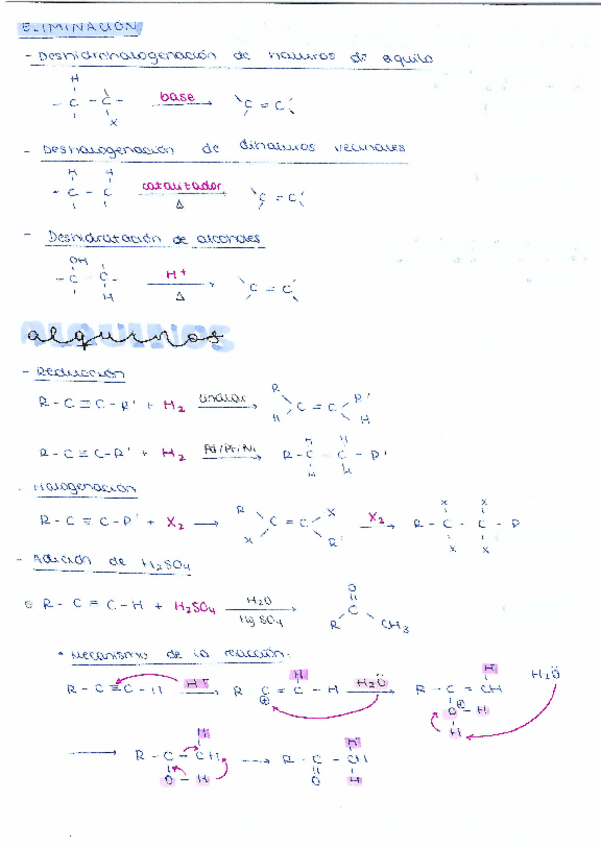 ELIMINACIÓN
- Deshidrohalogenación de haluros de aquilo
H
- C - C - base → C = C
X
- Deshalogenación de dihaluros vecinales
H H
- C - C - catalitador → C = C
Δ
- Deshidratación de alcoholes
OH
- C - C - H+ → C = C
H Δ
alquinos
- Reducción
R - C ≡ C - R' + H2 Lindlar → R H C = C R' H
R - C ≡ C - R' + H2 Pd/Pt/Ni → R - C - C - R'
H H
H H
- Halogenación
R - C ≡ C - R' + X2 → R X C = C X R' X2 → R - C - C - R
X X
X X
- Adición de H2SO4
R - C ≡ C - H + H2SO4 H2O → R C CH3
HgSO4
O
• Mecanismo de la reacción:
R - C ≡ C - H H+ → R C = C - H H2Ö → R - C = CH H2Ö
H ⊕ H
O - H ⊕
H
→ R - C = CH → R - C - CH
H H
O - H O H